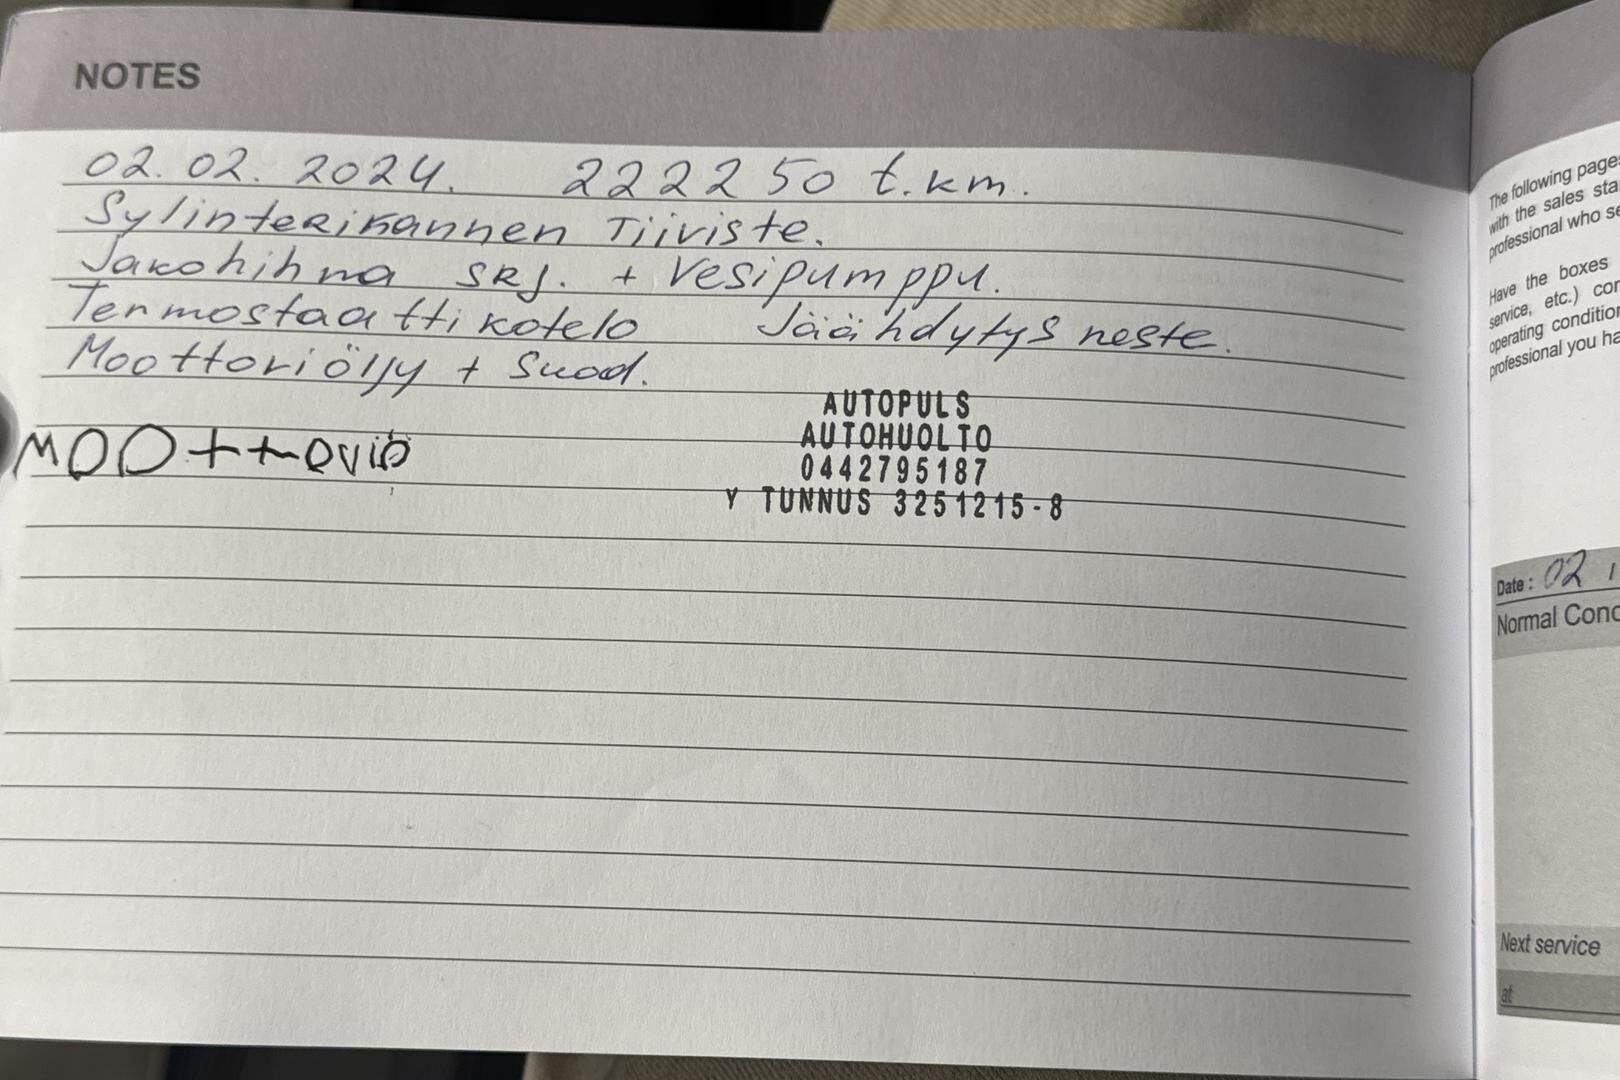 NOTES
02.02.2024. 222250 t.km.
Sylinterikannen Tiiviste.
Jakohihna SRJ. + Vesipumppu.
Termostaattikotelo Jäähdytysneste.
Moottoriöljy + Suod.
AUTOPULS
AUTOHUOLTO
0442795187
Y TUNNUS 3251215-8
The following page
with the sales sta
professional who se
Have the boxes
service, etc.) cor
operating condition
professional you ha
Date : 02 /
Normal Cond
Next service
at